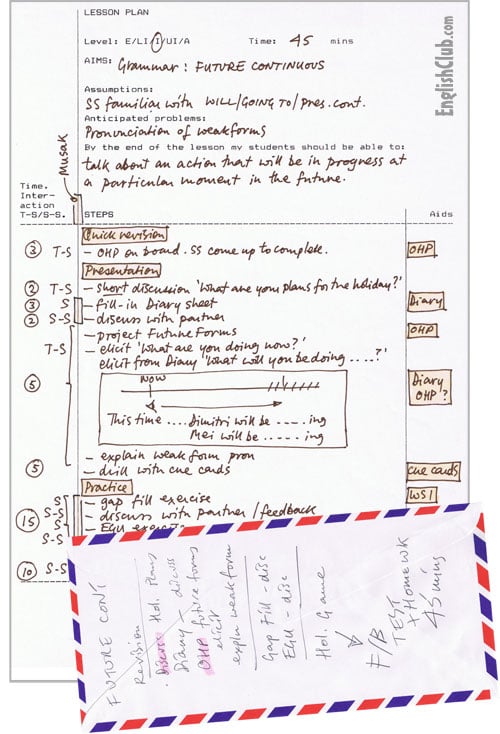 LESSON PLAN
EnglishClub.com
Level: E/LI/I/UI/A Time: 45 mins
AIMS: Grammar: FUTURE CONTINUOUS
Assumptions:
SS familiar with WILL/GOING TO/pres.cont.
Anticipated problems:
Pronunciation of weakforms
By the end of the lesson my students should be able to:
talk about an action that will be in progress at
a particular moment in the future.
Musak
Time.
Inter-
action
T-S/S-S. STEPS Aids
Quick revision
3 T-S – OHP on board. SS come up to complete. OHP
Presentation
2 T-S – short discussion 'What are your plans for the holiday?'
3 S – fill-in Diary sheet Diary
2 S-S – discuss with partner
– project Future Forms OHP
T-S – elicit 'What are you doing now?'
elicit from Diary 'What will you be doing ....?'
5 Diary OHP?
NOW
This time .... Dimitri will be ----- ing
Mei will be ----- ing
– explain weak form pron
5 – drill with cue cards cue cards
Practice
S – gap fill exercise WS1
15 S-S – discuss with partner/feedback
S – EGU exercise
S-S
10 S-S
FUTURE CONT
Revision
Discuss Hol. Plans
Diary – discuss
OHP future forms
elicit
explain weak form
Gap Fill – disc
EGU – disc
Hol. Game
F/B
TEST
+ Homewk
45 mins